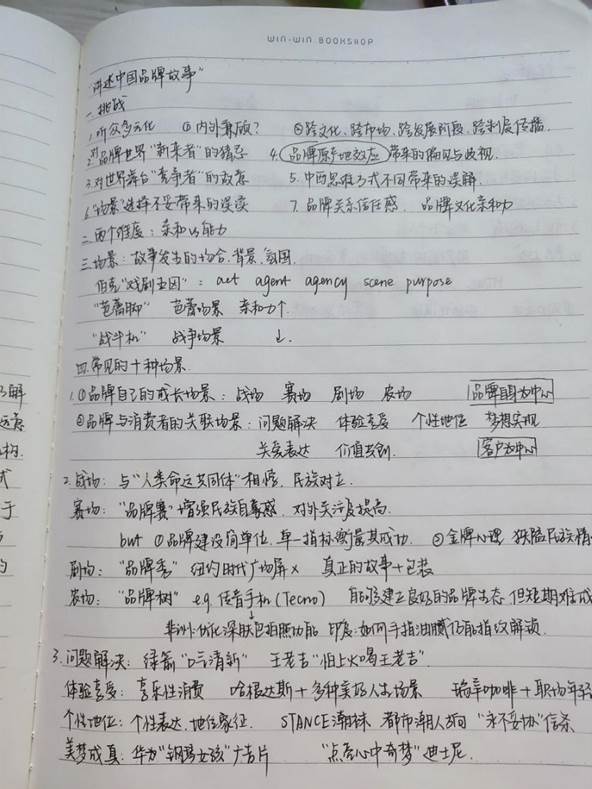 WIN-WIN BOOKSHOP
"讲述中国品牌故事"
一.挑战
1.听众多元化 ①内外兼顾? ②跨文化、跨市场、跨发展阶段、跨制度传播.
2.对品牌世界"新来者"的猜忌 4.品牌原产地效应 带来的偏见与歧视.
3.对世界舞台"竞争者"的敌意 5.中西思维方式不同带来的误解.
6."场景"选择不妥带来的误读 7.品牌关系信任感、品牌文化亲和力
二.两个维度:亲和 能力
三.场景:故事发生的场合、背景、氛围.
伯克"戏剧五因":act agent agency scene purpose
"芭蕾脚" 芭蕾场景 亲和力↑.
"战斗机" 战争场景 ↓.
四.常见的十种场景.
1.①品牌自己的成长场景:战场 赛场 剧场 农场 品牌自身为中心
②品牌与消费者的关联场景:问题解决 体验享受 个性地位 梦想实现
关爱表达 价值共创. 客户为中心
2.战场:与"人类命运共同体"相悖,民族对立.
赛场:"品牌赛"增强民族自豪感,对外关注度提高.
but ①品牌建设简单化,单一指标衡量其成功. ②金牌心理 狭隘民族情
剧场:"品牌秀" 纽约时代广场屏× 真正的故事+包装
农场:"品牌树" eg.传音手机(Tecno) 能够建立良好的品牌生态,但短期难成
非洲:优化深肤色拍照功能 印度:如何手指油腻仍能指纹解锁.
3.问题解决:绿箭"口气清新" 王老吉"怕上火喝王老吉".
体验享受:享乐性消费 哈根达斯+多种美好人生场景 瑞幸咖啡+职场年轻
个性地位:个性表达、地位象征. STANCE潮袜 都市潮人 "永不妥协"信条
美梦成真:华为"钢琴女孩"广告片 "点亮心中奇梦"迪士尼.
了解
构.
式
于
的